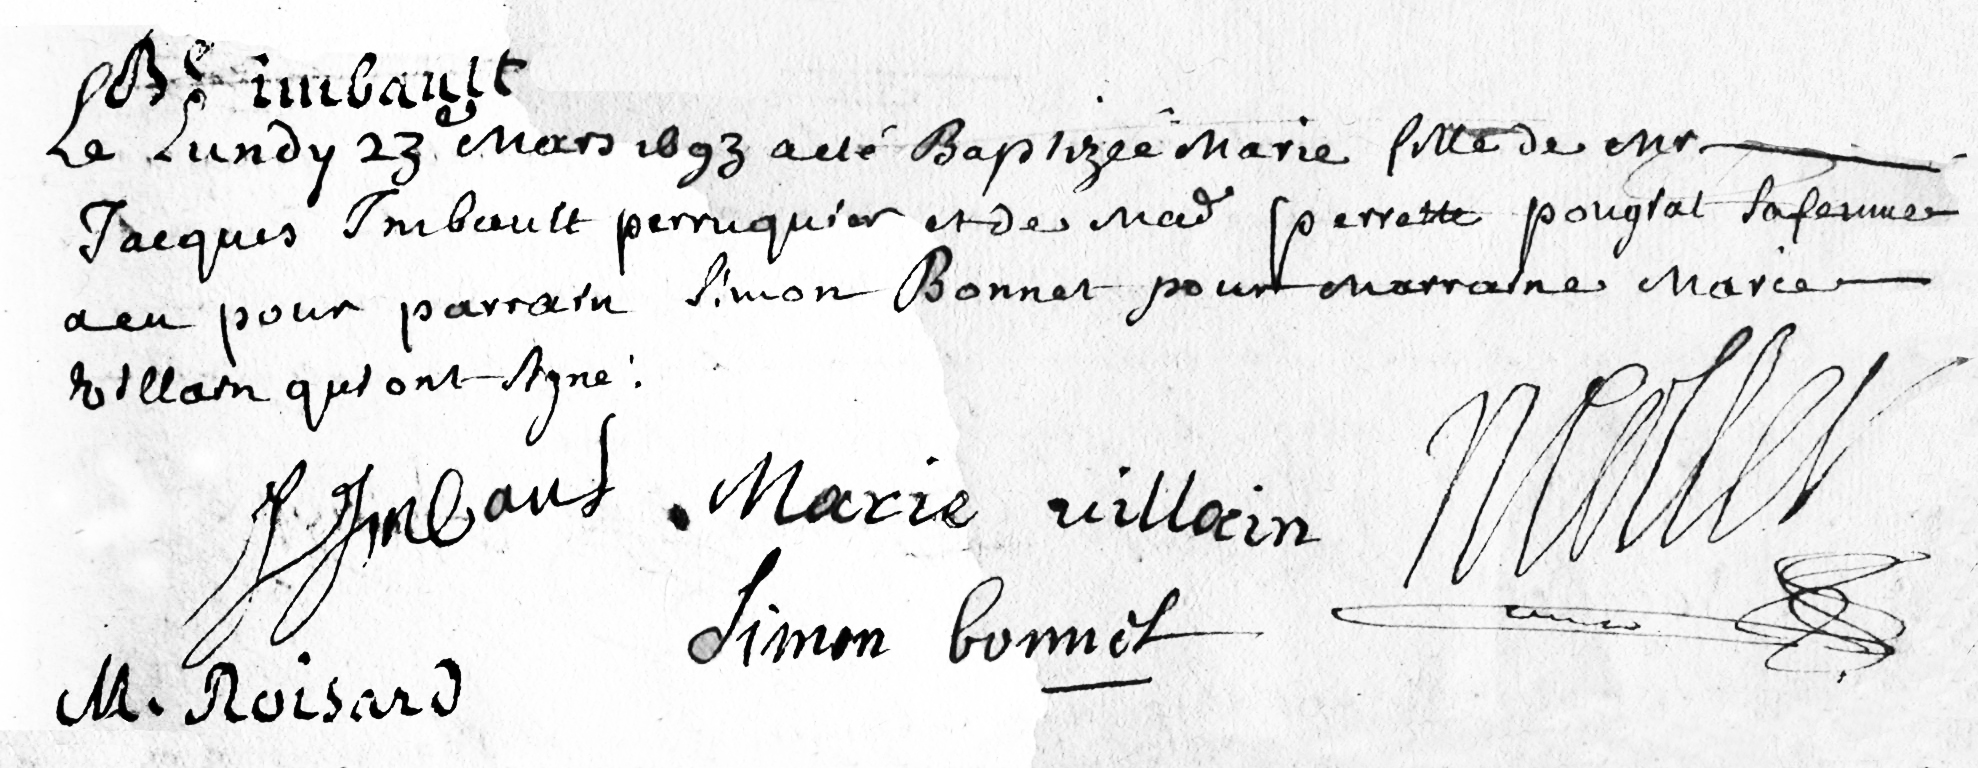 Bᵉ imbault
Le Lundy 23ᵉ Mars 1693 a eté Baptizée Marie fille de Mr
Jacques Imbault perruquier et de Madᵉ perrette pougiat sa femme
a eu pour parrain Simon Bonnet pour Marraine Marie
Villain qui ont signé.
J Imbault Marie villain
Simon bonnet
M. Roisard